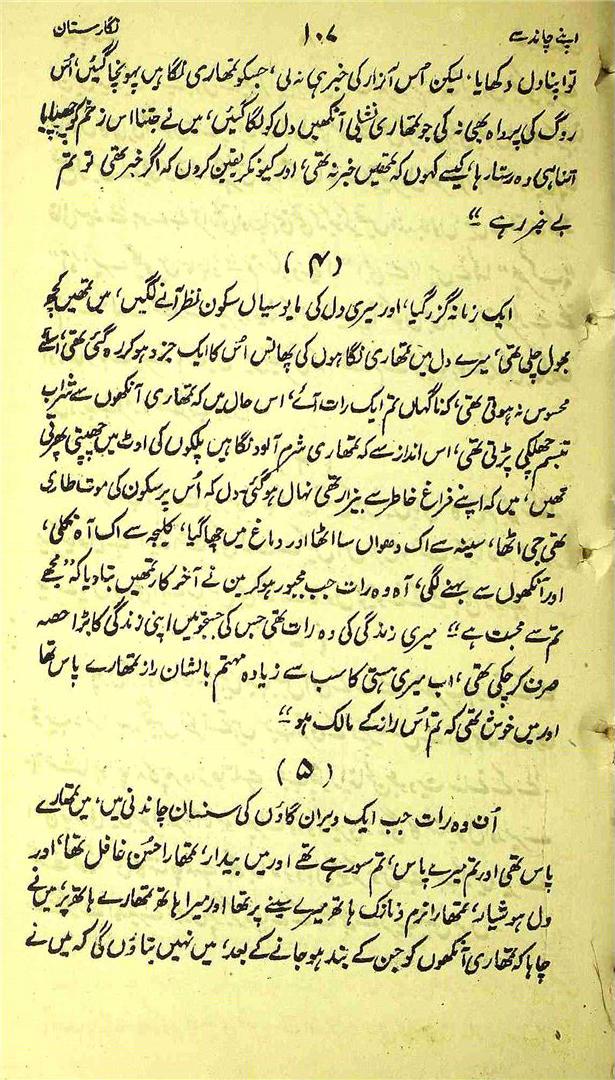 اپنے چاند سے ۱۰۷ نگارستان
تو اپنا دل دکھایا، لیکن اُس آزار کی خبر ہی نہ لی، جسکو تمھاری نگاہیں پہونچا گئیں، اُس
روگ کی پرواہ بھی نہ کی جو تمھاری نشیلی آنکھیں دل کو لگا گئیں، میں نے جتنا اس زخم کو چھپایا
اتنا ہی وہ رستا رہا، کیسے کہوں کہ تمھیں خبر نہ تھی، اور کیونکر یقین کروں کہ اگر خبر تھی تو تم
بے خبر رہے "
(۴)
ایک زمانہ گزر گیا، اور میری دل کی مایوسیاں سکون نظر آنے لگیں، میں تمھیں کچھ
بھول چلی تھی، میرے دل میں تمھاری نگاہوں کی پھانس اُس کا ایک جزو ہو کر رہ گئی تھی،
محسوس نہ ہوتی تھی، کہ ناگہاں تم ایک رات آئے، اس حال میں کہ تمھاری آنکھوں سے شراب
تبسم چھلکی پڑتی تھی، اس انداز سے کہ تمھاری شرم آلود نگاہیں پلکوں کی اوٹ میں چھپتی پھرتی
تھیں، میں کہ اپنے فراغ خاطر سے بیزار تھی نہال ہو گئی۔ دل کہ اُس پر سکون کی موت طاری
تھی جی اٹھا، سینہ سے اک دھواں سا اٹھا اور دماغ میں چھا گیا، کلیجہ سے اک آہ نکلی،
اور آنکھوں سے بہنے لگی، آہ وہ رات جب مجبور ہو کر میں نے آخر کار تمھیں بتا دیا کہ "مجھے
تم سے محبت ہے" میری زندگی کی وہ رات تھی جس کی جستجو میں اپنی زندگی کا بڑا حصہ
صرف کر چکی تھی، اب میری ہستی کا سب سے زیادہ مہتم بالشان راز تمھارے پاس تھا
اور میں خوش تھی کہ تم اُس راز کے مالک ہو"
(۵)
اُف وہ رات جب ایک ویران گاؤں کی سنسان چاندنی میں، میں تمھارے
پاس تھی اور تم میرے پاس، تم سو رہے تھے اور میں بیدار، تمھارا حسُن غافل تھا، اور
دل ہوشیار، تمھارا نرم و نازک ہاتھ میرے سینے پر تھا اور میرا ہاتھ تمھارے ہاتھ پر، میں نے
چاہا کہ تمھاری آنکھوں کو جن کے بند ہو جانے کے بعد، میں نہیں بتاؤں گی کہ میں نے